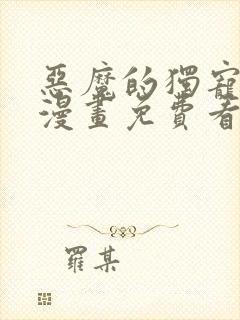 惡魔的獨寵
漫畫免費看
羅某